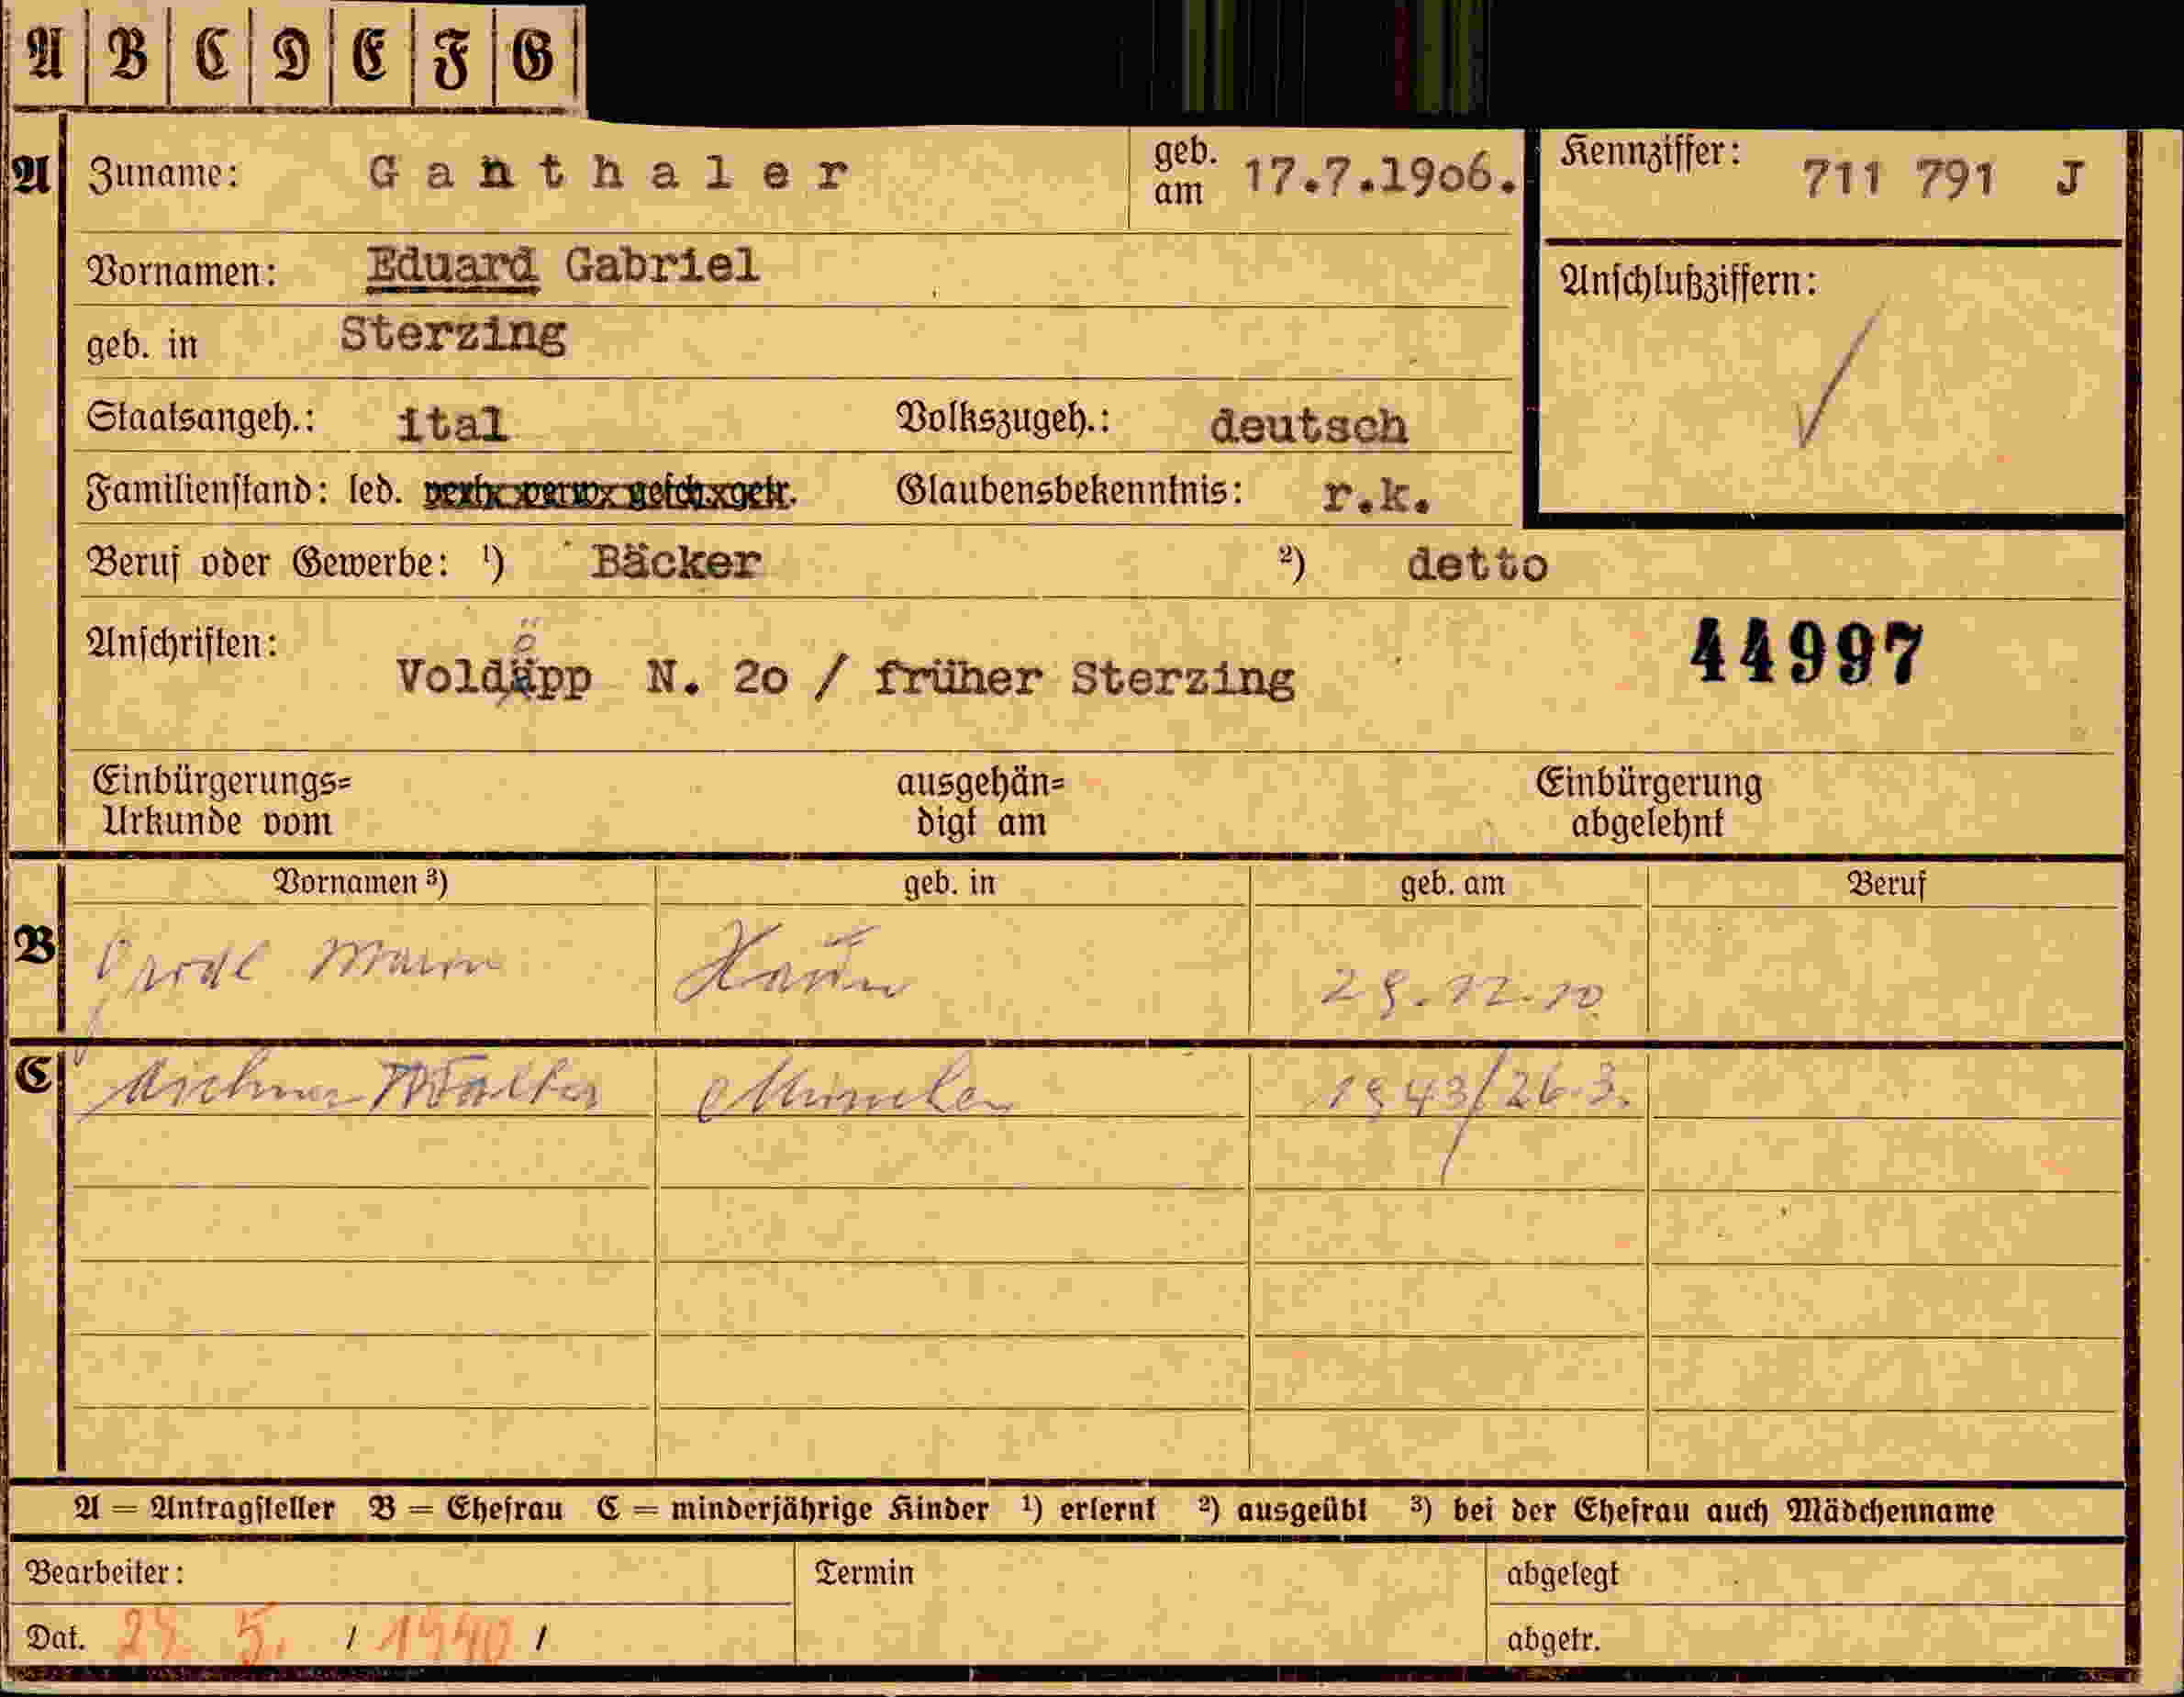 A B C D E F G
A Zuname: Ganthaler geb. am 17.7.1906. Kennziffer: 711 791 J
Vornamen: Eduard Gabriel
Anschlußziffern:
geb. in Sterzing
Staatsangeh.: ital Volkszugeh.: deutsch
Familienstand: led. verh. verw. gesch. getr. Glaubensbekenntnis: r.k.
Beruf oder Gewerbe: ¹) Bäcker ²) detto
Anschriften: Voldöpp N. 20 / früher Sterzing 44997
Einbürgerungs= ausgehän= Einbürgerung
Urkunde vom digt am abgelehnt
Vornamen ³) geb. in geb. am Beruf
B 29.12.10
C Walter München 1943/26.3.
A = Antragsteller B = Ehefrau C = minderjährige Kinder ¹) erlernt ²) ausgeübt ³) bei der Ehefrau auch Mädchenname
Bearbeiter: Termin abgelegt
Dat. 5. / 1940 / abgetr.